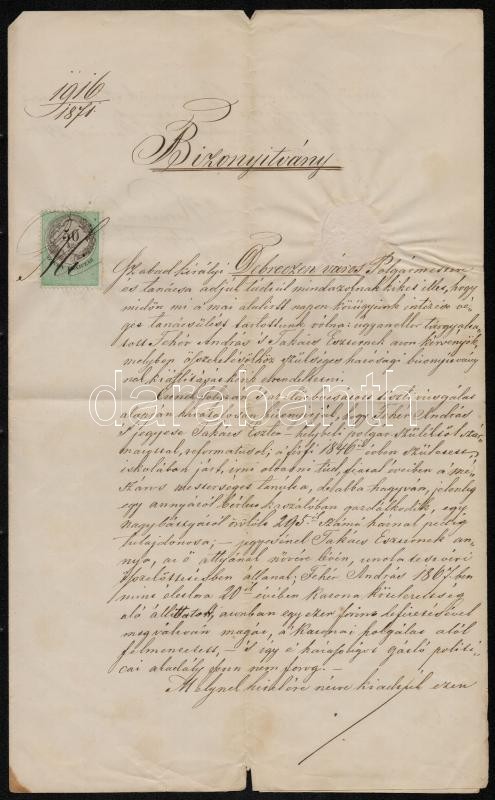 1916
1871.
Bizonyitvány
50
Szabad királyi Debreczen város Polgármestere
és tanácsa adjuk tudtúl mindazoknak kiket illet, hogy
midőn mi a mai alulirt napon közügyeink intézése vé-
gett tanácsülést tartottunk volna: ugyanekkor tárgyalta-
tott Fehér András s Takács Eszternek azon kérvényök,
melyben összekelésökhöz szükséges hatósági bizonyitvány-
nak kiállitását kérik elrendeltetni.
Ennek folytán
alapján hivatalosan bizonyitjuk, hogy Fehér András
s jegyese Takács Eszter – helybeli polgári szülőktől szár-
maznak, reformatusok; a férfi 1846ik évben született
iskolában járt, irni olvasni tud, fiatal éveiben a mé-
száros mesterséget tanúlta, de abba hagyván, jelenleg
egy annyáról kaszálóban gazdálkodik, egy
nagybátyjáról örökölt 295ik számú háznak pedig
tulajdonosa; – jegyesének Takács Eszternek an-
nya, az ő attyának nővére lévén, unokatestvéri
összeköttetésben állanak, Fehér András 1867.ben
mint életének 20ik évében katona kötelezettség
alá állittatott, azonban egy ezer forint lefizetésével
megváltván magát, a katonai szolgálat alól
felmentetett, – s igy a házasságot gátló politi-
cai akadály fenn nem forog. –
Melynek hiteléül nevére kiadjuk ezen
darabanth